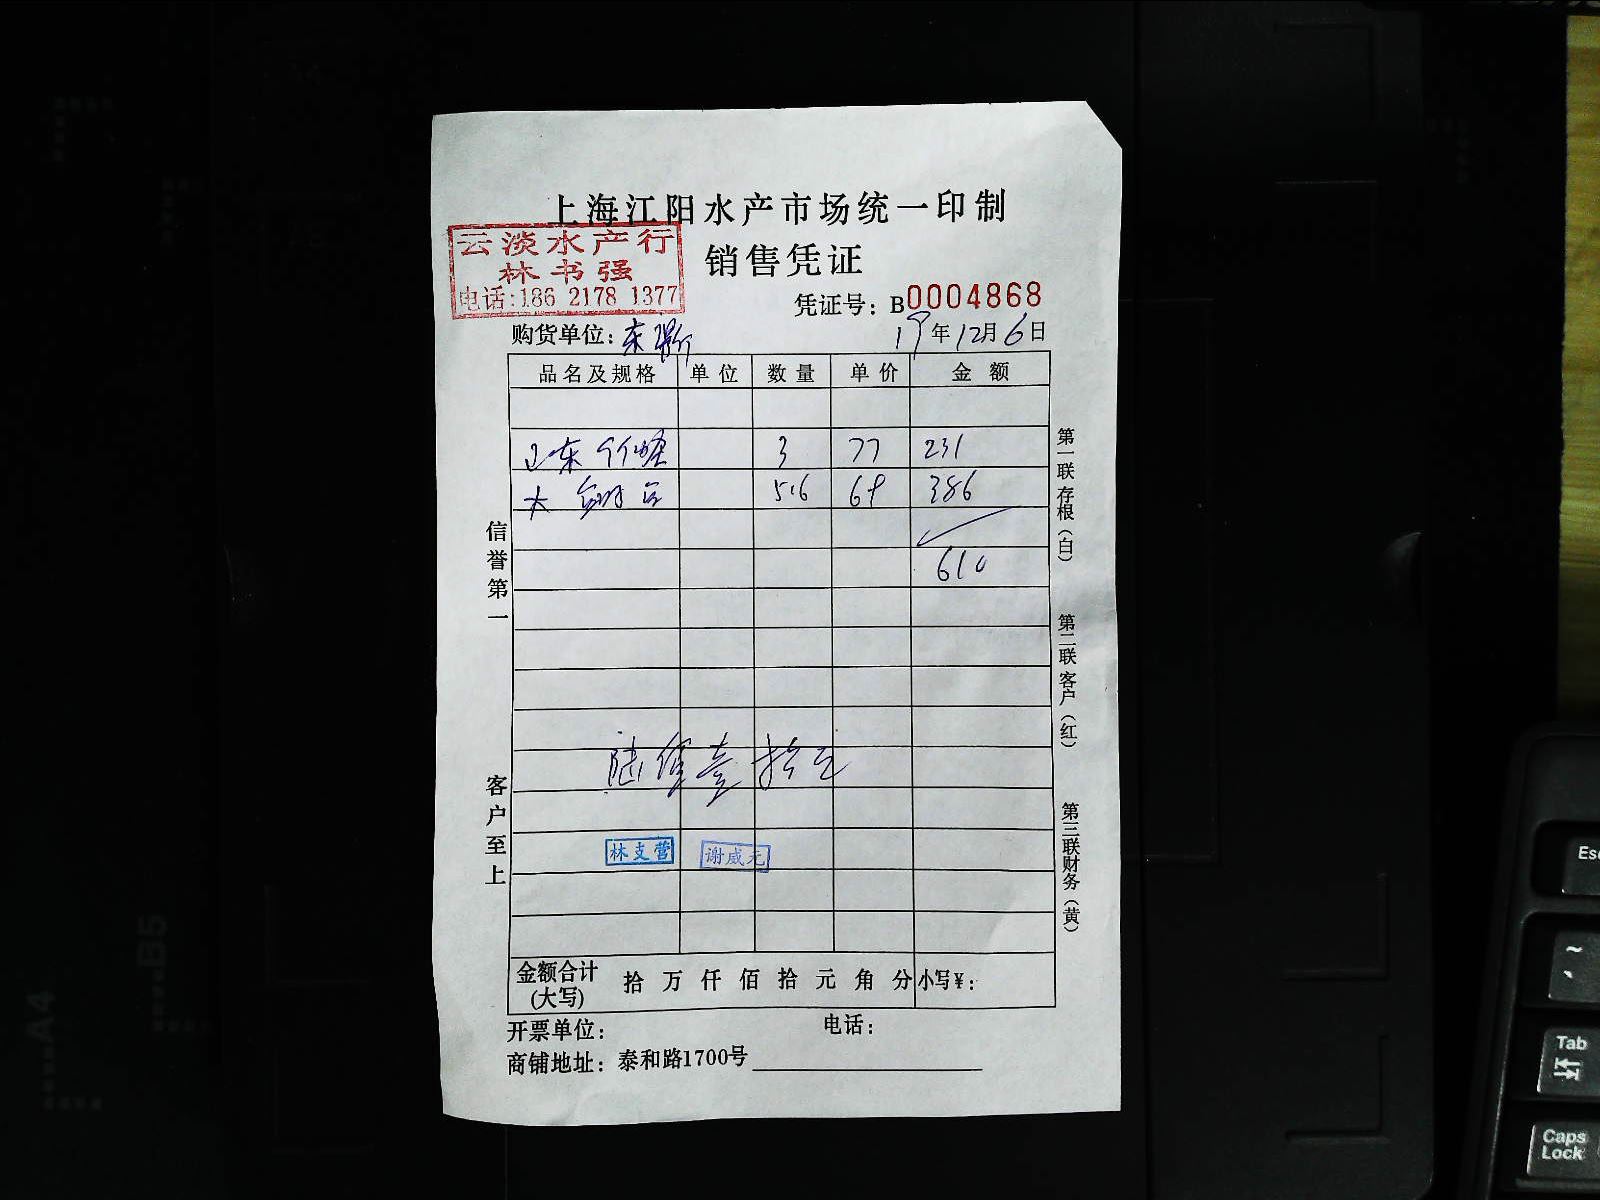 上海江阳水产市场统一印制
云淡水产行
林书强
电话:186 2178 1377
销售凭证
凭证号: B0004868
购货单位: 东
19年12月6日
品名及规格 单位 数量 单价 金额
山东 3 77 231
大 5.6 69 386
610
陆佰壹拾元
林支营 谢威元
金额合计(大写) 拾 万 仟 佰 拾 元 角 分 小写¥:
开票单位: 电话:
商铺地址: 泰和路1700号
信誉第一
客户至上
第一联存根(白)
第二联客户(红)
第三联财务(黄)
B5
A4
Esc
~
Tab
Caps Lock